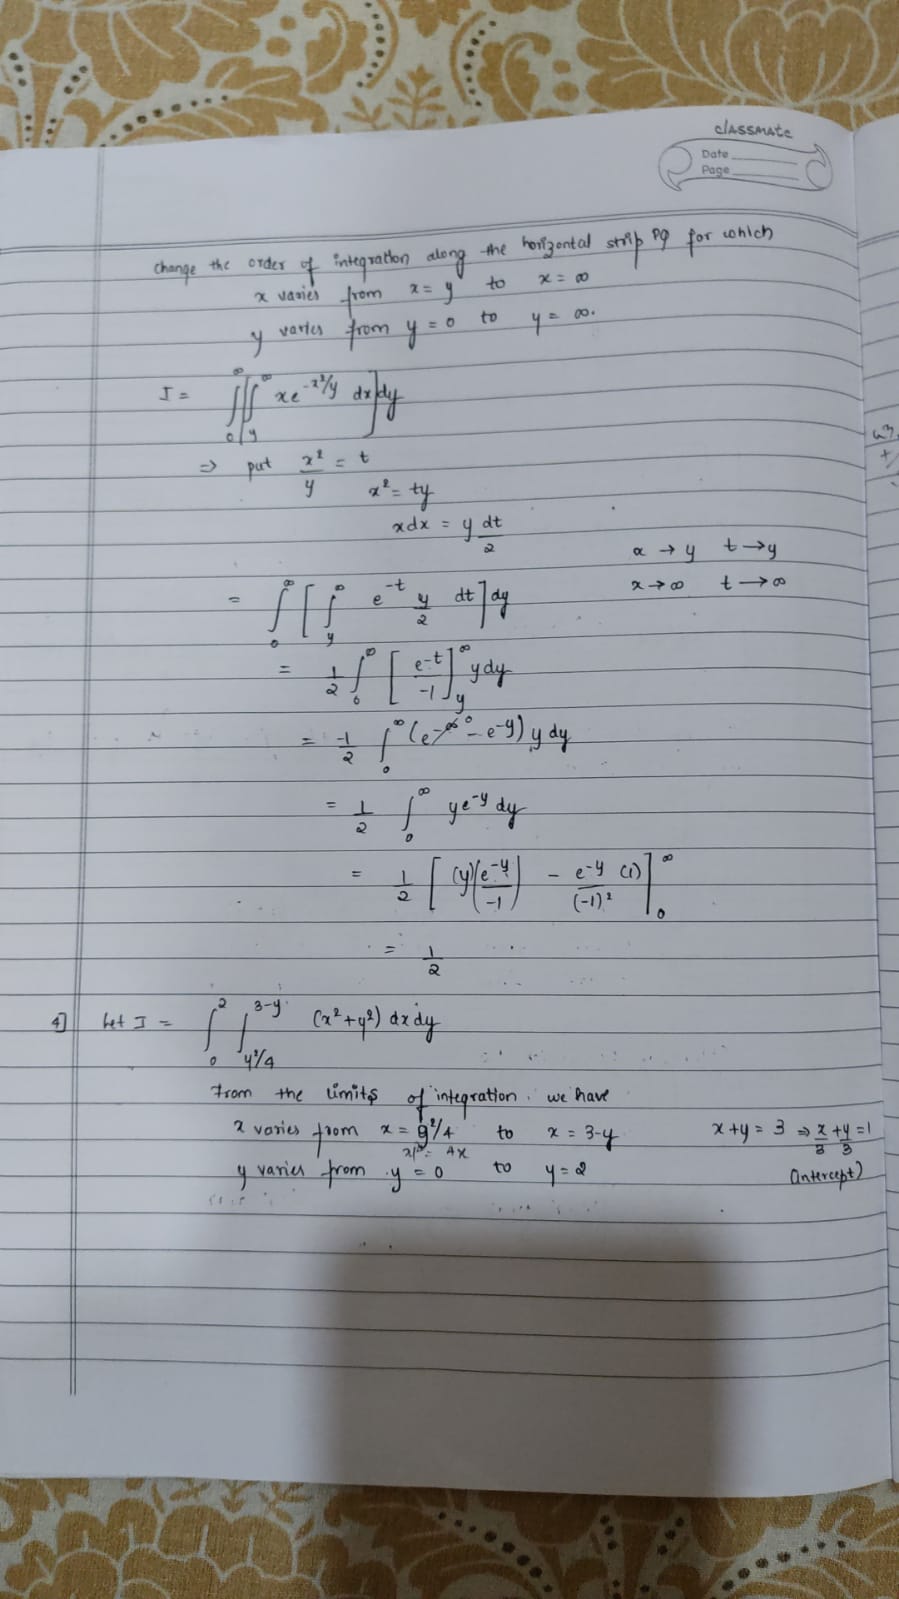 classmate
Date
Page
change the order of integration along the horizontal strip PQ for which
x varies from x = y to x = ∞
y varies from y = 0 to y = ∞.
I = ∫₀^∞ [∫_y^∞ xe^(-x²/y) dx] dy
⇒ put x²/y = t
x² = ty
xdx = y dt/2
x → y t → y
x → ∞ t → ∞
= ∫₀^∞ [∫_y^∞ e^-t y/2 dt] dy
= 1/2 ∫₀^∞ [e^-t/-1]_y^∞ ydy
= -1/2 ∫₀^∞ (e^-∞ ⁰ - e^-y) y dy
= 1/2 ∫₀^∞ ye^-y dy
= 1/2 [(y)(e^-y/-1) - e^-y (1)/(-1)²]₀^∞
= 1/2
4] Let I = ∫₀² ∫_(y²/4)^(3-y) (x²+y²) dxdy
From the limits of integration, we have
x varies from x = y²/4 to x = 3-y x+y = 3 ⇒ x/3 + y/3 = 1
= 4x
y varies from y = 0 to y = 2 (intercept)